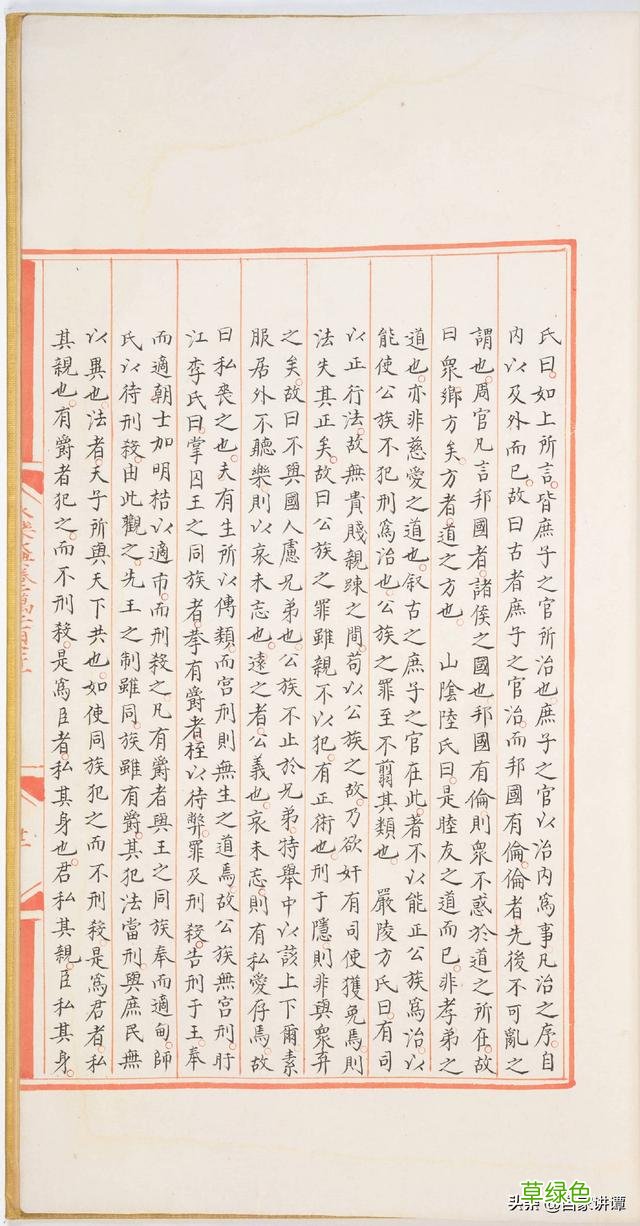 氏曰。如上所言。皆庶子之官所治也。庶子之官以治內爲事。凡治之序。自
內以及外而已。故曰古者庶子之官治。而邦國有倫。倫者先後不可亂之
謂也。周官凡言邦國者。諸侯之國也。邦國有倫則衆不惑於道之所在。故
曰衆鄉方矣。方者。道之方也。 山陰陸氏曰。是睦友之道而已。非孝弟之
道也。亦非慈愛之道也。叙古之庶子之官在此。者不以能正公族爲治。以
能使公族不犯刑爲治也。公族之罪至不翦其類也。 嚴陵方氏曰。有司
以正行法。故無貴賤親踈之間。苟以公族之故。乃欲奸有司使獲免焉。則
法失其正矣。故曰公族之罪雖親不以犯。有正術也。刑于隱。則非與衆弃
之矣。故曰不與國人慮兄弟也。公族不止於兄弟。特舉中以該上下爾。素
服居外不聽樂。則以哀未忘也。遠之者。公義也。哀未忘。則有私愛存焉。故
曰私喪之也。夫有生所以傳類。而宮刑則無生之道焉。故公族無宮刑。盱
江李氏曰。掌囚王之同族者拲。有爵者桎。以待弊罪。及刑殺。告刑于王。奉
而適朝。士加明梏。以適市。而刑殺之。凡有爵者與王之同族。奉而適甸師
氏以待刑殺。由此觀之。先王之制雖同族雖有爵。其犯法當刑。與庶民無
以異也。法者。天子所與天下共也。如使同族犯之而不刑殺。是爲君者。私
其親也。有爵者犯之。而不刑殺。是爲臣者。私其身也。君私其親。臣私其身。
草绿色
头条@百家讲谭